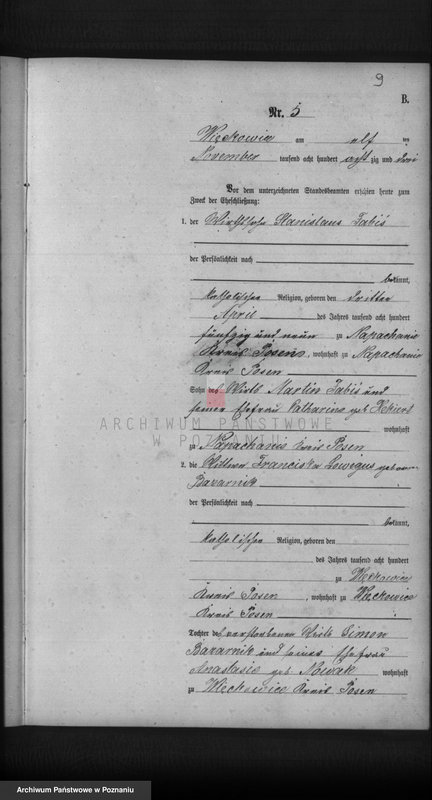 9
B.
Nr. 5
Więckowice am elf ten
November tausend acht hundert acht zig und drei
Vor dem unterzeichneten Standesbeamten erschien heute zum
Zweck der Eheschließung:
1. der Wirthssohn Stanislaus Tabiś
der Persönlichkeit nach
bekannt,
katholischer Religion, geboren den dritten
April des Jahres tausend acht hundert
fünfzig und neun zu Napachanie
Kreis Posen, wohnhaft zu Napachanie
Kreis Posen
Sohn des Wirts Martin Tabiś und
seiner Ehefrau Catharina geb.
wohnhaft
ARCHIWUM PAŃSTWOWE
W POZNANIU
zu Napachanie Kreis Posen
2. die Wittwe Franciska geborene
Bazarnik
der Persönlichkeit nach
bekannt,
katholischer Religion, geboren den
des Jahres tausend acht hundert
zu Więckowice
Kreis Posen, wohnhaft zu Więckowice
Kreis Posen
Tochter des verstorbenen Wirts Simon
Bazarnik und seiner Ehefrau
Anastasie geb. Nowak wohnhaft
zu Więckowice Kreis Posen
Archiwum Państwowe w Poznaniu